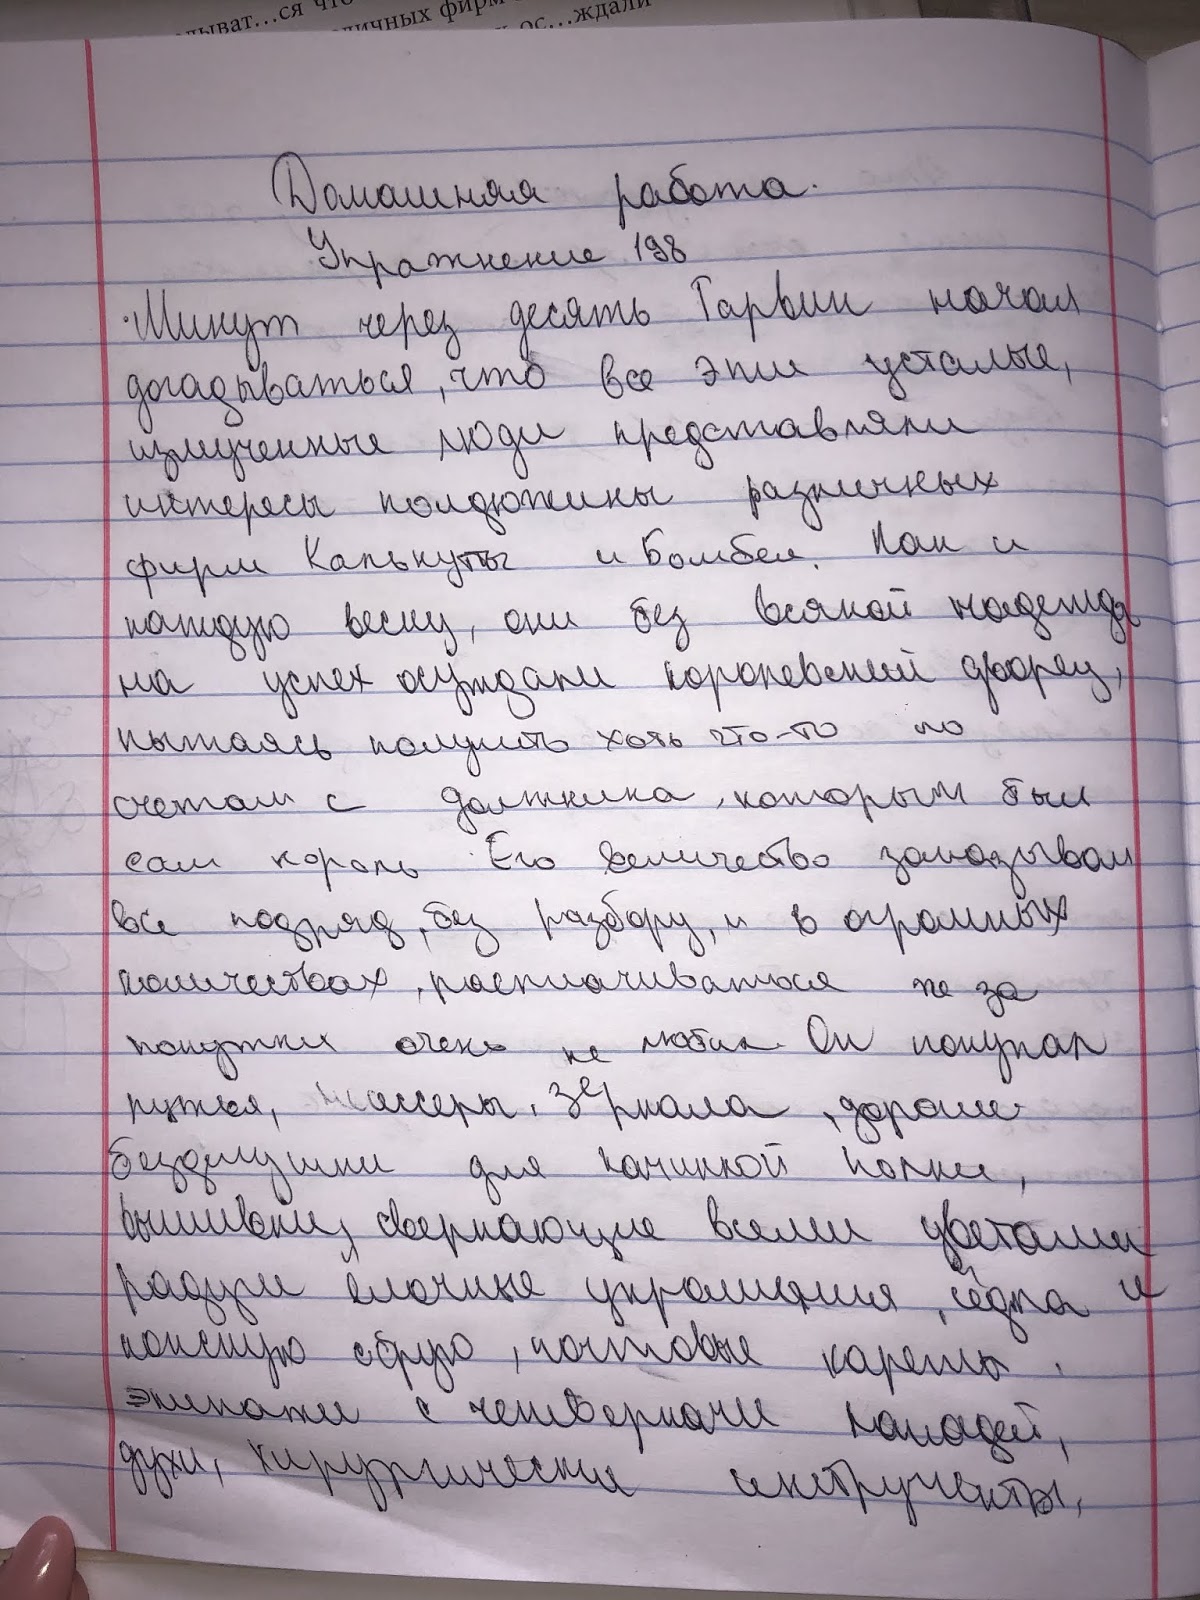 дыват...ся что
личных фирм
ос...ждали
Домашняя работа.
Упражнение 198
Минут через десять Тарвин начал
догадываться, что все эти усталые,
измученные люди представляли
интересы полдюжины различных
фирм Калькутты и Бомбея. Как и
каждую весну, они без всякой надежды
на успех осуждали королевский дворец,
пытаясь получить хоть что-то по
счетам с должника, которым был
сам король. Его величество заказывал
все подряд, без разбору, и в огромных
количествах, расплачиваться же за
покупки очень не любил. Он покупал
ружья, несессеры, зеркала, дорогие
безделушки для каминной полки,
вышивки, сверкающие всеми цветами
радуги ёлочные украшения, сёдла и
конскую сбрую, почтовые кареты,
экипажи с четверками лошадей,
духи, хирургические инструменты,